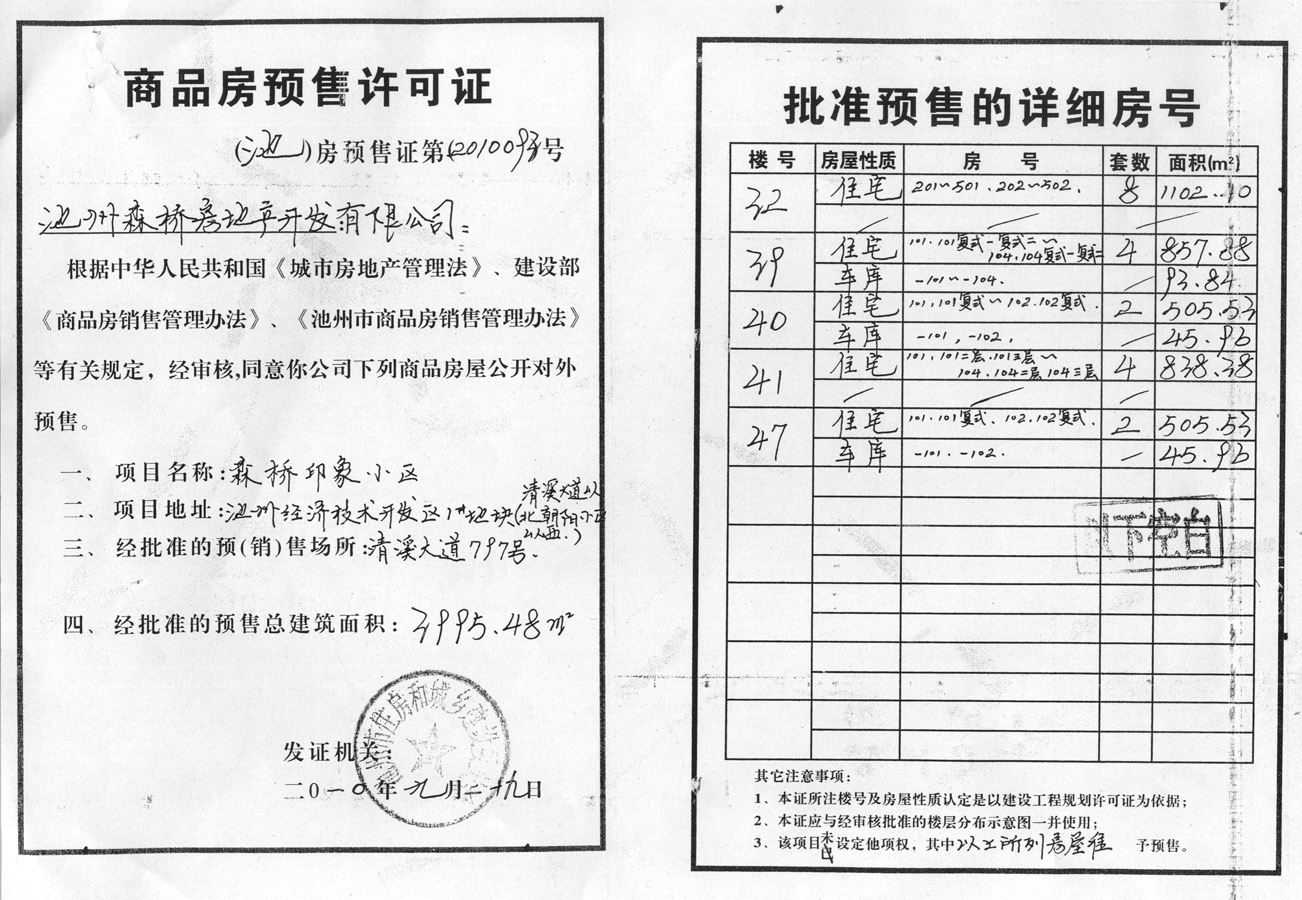 商品房预售许可证
(池)房预售证第(2010093号
池州森桥房地产开发有限公司:
根据中华人民共和国《城市房地产管理法》、建设部
《商品房销售管理办法》、《池州市商品房销售管理办法》
等有关规定，经审核,同意你公司下列商品房屋公开对外
预售。
一、项目名称:森桥印象小区
二、项目地址:池州经济技术开发区1#地块(清溪大道以北朝阳小区以西.)
三、经批准的预(销)售场所:清溪大道797号.
四、经批准的预售总建筑面积: 3995.48m²
池州市住房和城乡建设委员会
发证机关:
二0一0年九月二十九日
批准预售的详细房号
楼号 房屋性质 房号 套数 面积(m²)
32 住宅 201~501.202~502. 8 1102.40
39 住宅 101.101复式一复式二~104.104复式一复式二 4 857.88
车库 -101~-104. — 93.84
40 住宅 101.101复式~102.102复式. 2 505.53
车库 -101,-102. — 45.96
41 住宅 101.101二层.101三层~104.104二层104三层 4 838.38
47 住宅 101.101复式.102.102复式. 2 505.53
车库 -101.-102. — 45.96
以下空白
其它注意事项:
1、本证所注楼号及房屋性质认定是以建设工程规划许可证为依据;
2、本证应与经审核批准的楼层分布示意图一并使用;
3、该项目未设定他项权，其中以上所列房屋准 予预售。